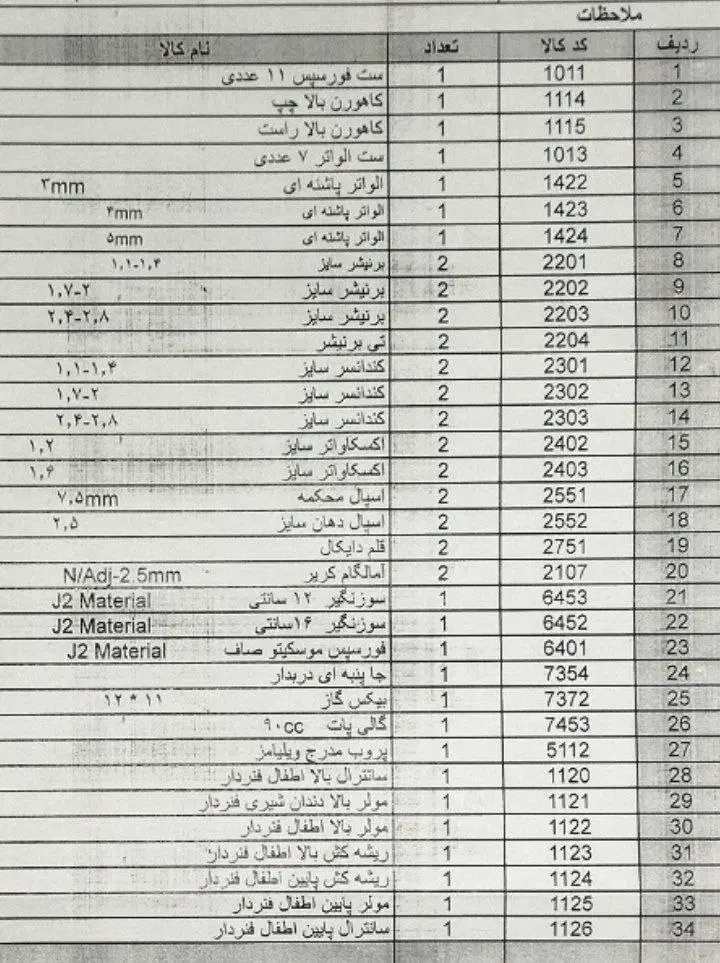 ملاحظات
ردیف کد کالا تعداد نام کالا
1 1011 1 ست فورسپس ۱۱ عددی
2 1114 1 کاهورن بالا چپ
3 1115 1 کاهورن بالا راست
4 1013 1 ست الواتر ۷ عددی
5 1422 1 الواتر پاشنه ای ۳mm
6 1423 1 الواتر پاشنه ای ۴mm
7 1424 1 الواتر پاشنه ای ۵mm
8 2201 2 برنیشر سایز ۱,۱-۱,۴
9 2202 2 برنیشر سایز ۱,۷-۲
10 2203 2 برنیشر سایز ۲,۴-۲,۸
11 2204 2 تی برنیشر
12 2301 2 کندانسر سایز ۱,۱-۱,۴
13 2302 2 کندانسر سایز ۱,۷-۲
14 2303 2 کندانسر سایز ۲,۴-۲,۸
15 2402 2 اکسکاواتر سایز ۱,۲
16 2403 2 اکسکاواتر سایز ۱,۶
17 2551 2 اسپال محکمه ۷,۵mm
18 2552 2 اسپال دهان سایز ۲,۵
19 2751 2 قلم دایکال
20 2107 2 آمالگام کریر N/Adj-2.5mm
21 6453 1 سوزنگیر ۱۲ سانتی J2 Material
22 6452 1 سوزنگیر ۱۶سانتی J2 Material
23 6401 1 فورسپس موسکیتو صاف J2 Material
24 7354 1 جا پنبه ای دربدار
25 7372 1 بیکس گاز ۱۱ * ۱۲
26 7453 1 گالی پات ۹۰cc
27 5112 1 پروب مدرج ویلیامز
28 1120 1 سانترال بالا اطفال فنردار
29 1121 1 مولر بالا دندان شیری فنردار
30 1122 1 مولر بالا اطفال فنردار
31 1123 1 ریشه کش بالا اطفال فنردار
32 1124 1 ریشه کش پایین اطفال فنردار
33 1125 1 مولر پایین اطفال فنردار
34 1126 1 سانترال پایین اطفال فنردار